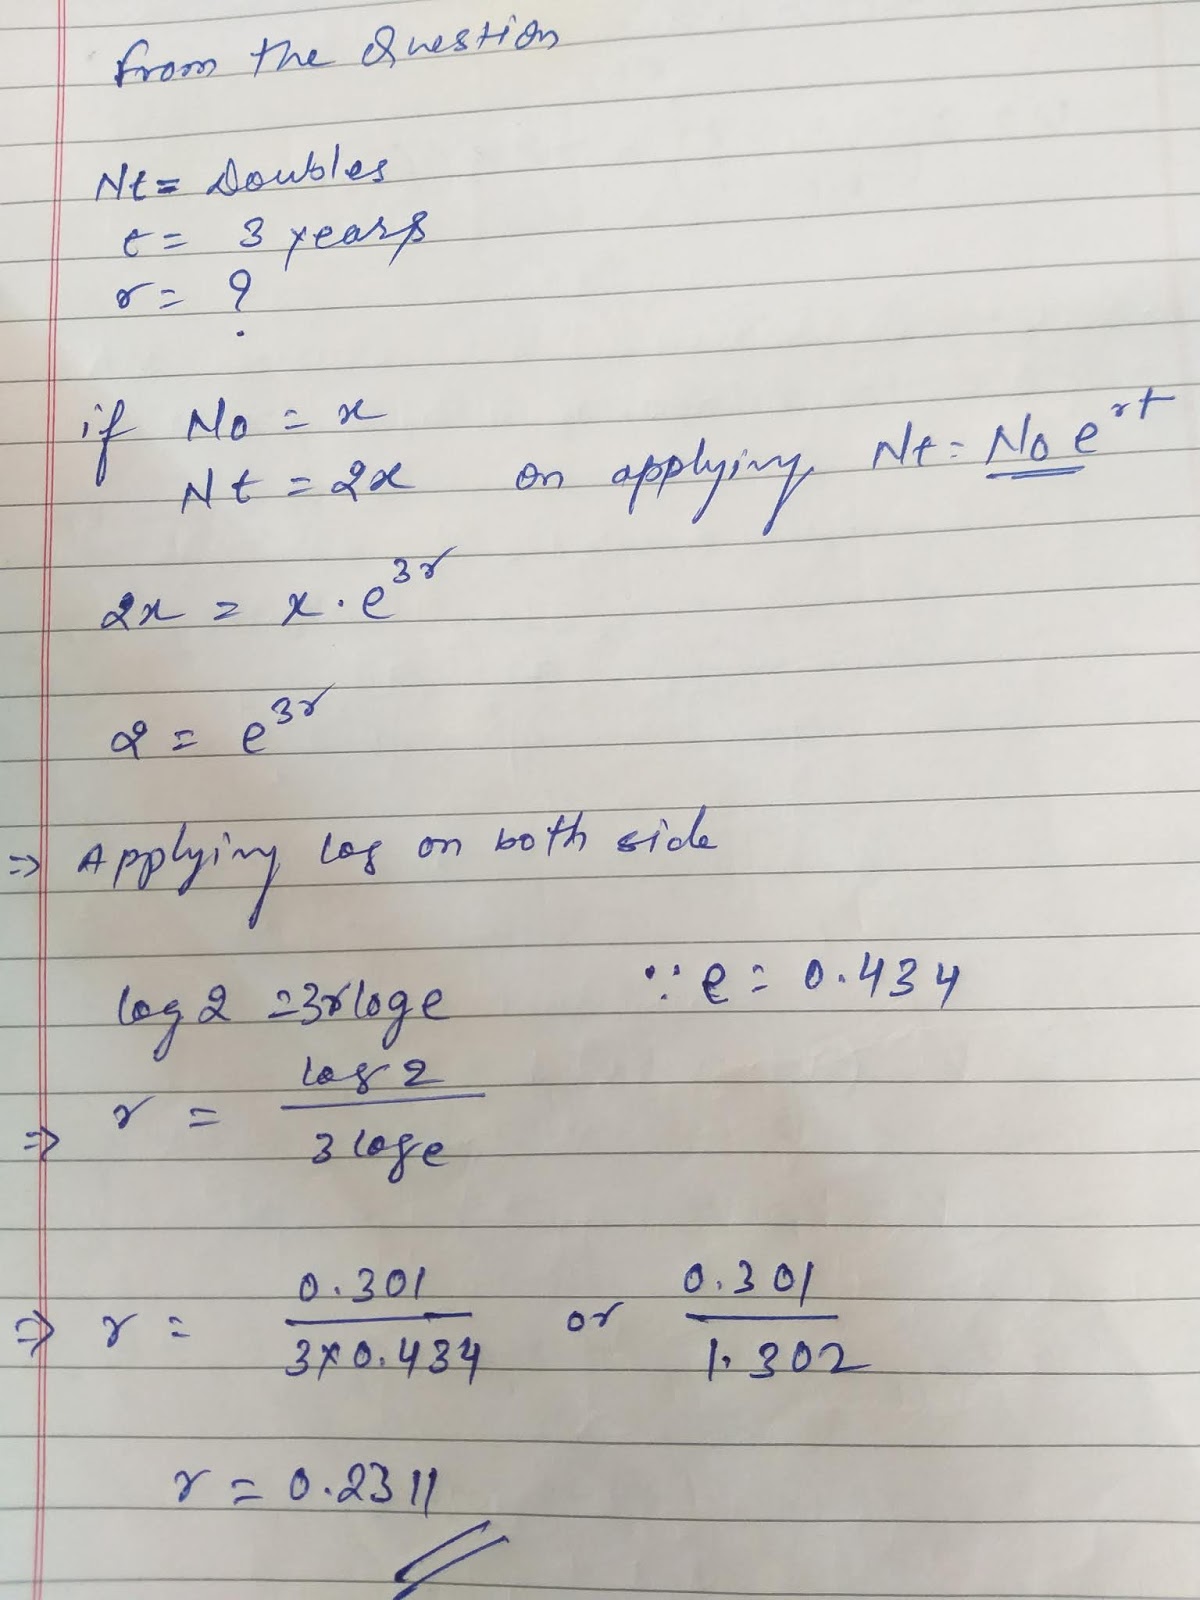 from the Question
Nt = Doubles
t = 3 years
r = ?
if No = x
Nt = 2x on applying Nt = No e^rt
2x = x . e^3r
2 = e^3r
⇒ Applying log on both side
log 2 = 3r log e ∵ e = 0.434
⇒ r = log 2 / 3 log e
⇒ r = 0.301 / 3×0.434 or 0.301 / 1.302
r = 0.2311